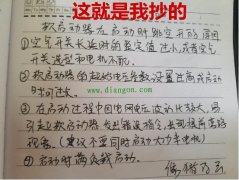 这就是我抄的
软启动器在启动时跳空开的原因
①空气开关长延时的整定值过小,或者空气
开关选型和电机不配.
②软启动器的起始电压参数设置过高或启动
时间过长.
③在启动过程中因电网电压波动比较大,易
引起软启动器发出错误指令,出现提前旁路
现象。(建议不要同时启动大功率电机)
④启动时满负载启动.
www.diangon.com